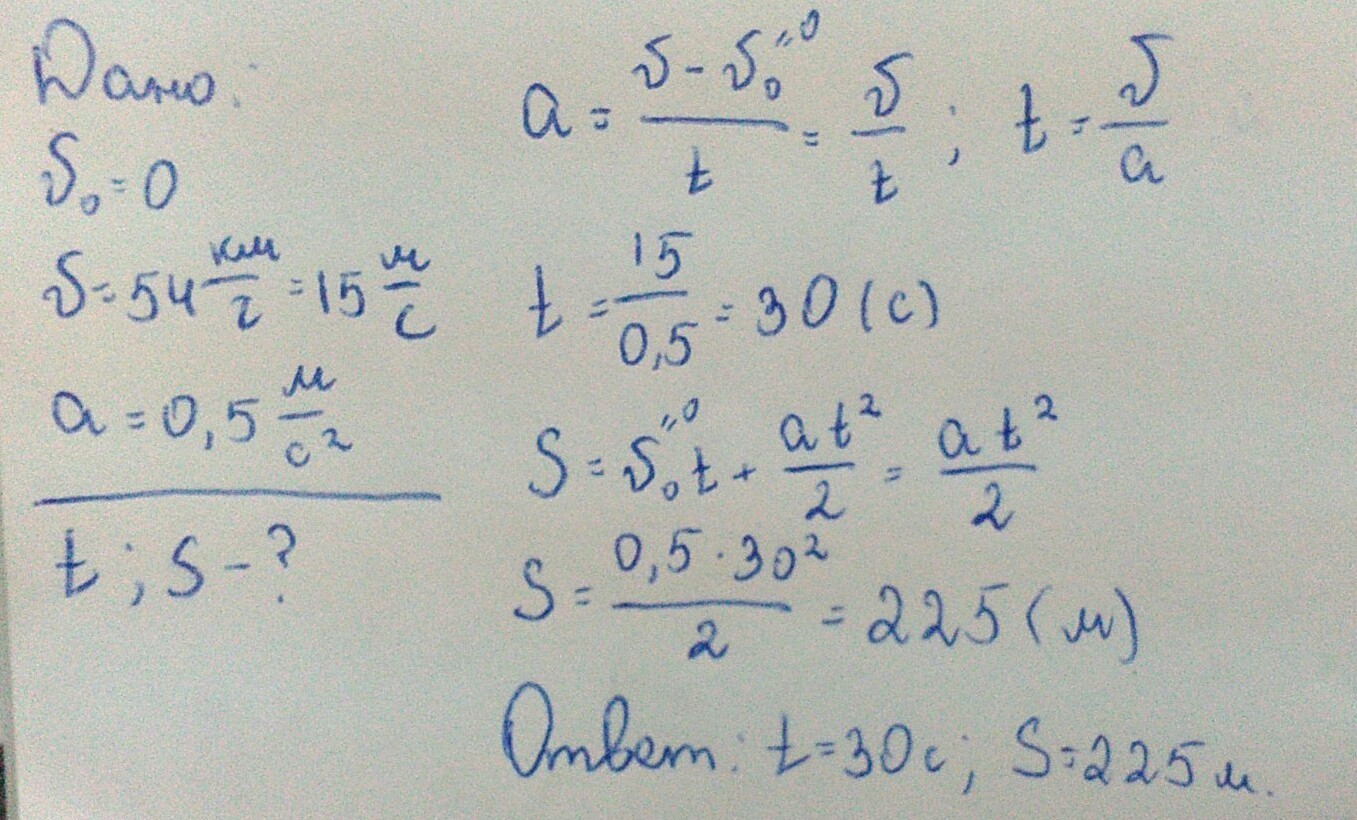 Дано:
υ₀=0
υ=54 км/г =15 м/с
a=0,5 м/с²
t; S-?
a = (υ-υ₀"0)/t = υ/t; t = υ/a
t = 15/0,5 = 30 (с)
S = υ₀"0t + at²/2 = at²/2
S = 0,5·30²/2 = 225 (м)
Ответ: t=30с; S=225м.